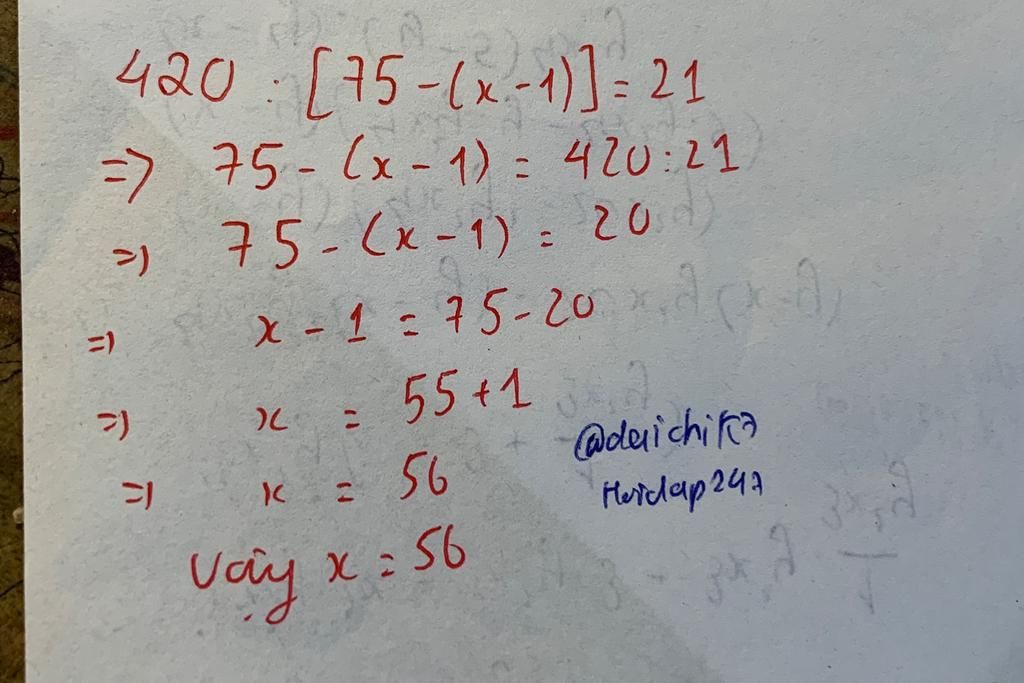 420 : [75-(x-1)] = 21
=> 75 - (x - 1) = 420:21
=> 75 - (x - 1) = 20
=> x - 1 = 75-20
=> x = 55+1
=> x = 56
Vậy x = 56
@daichik7
Hoidap247